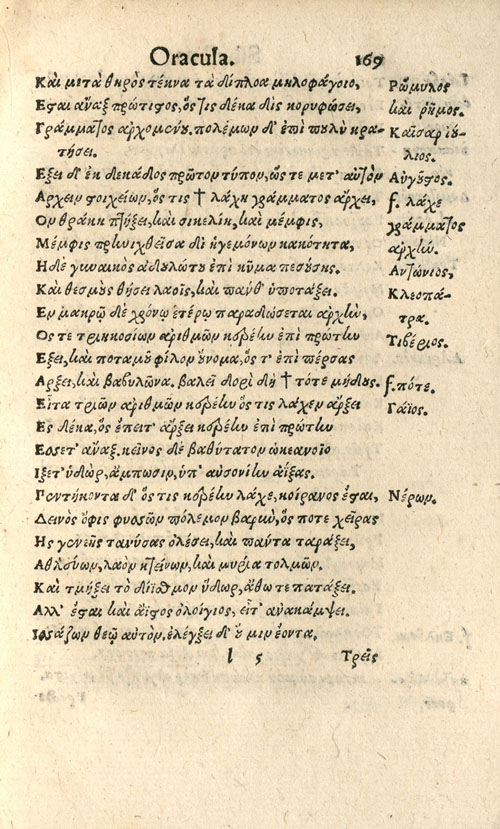 Oracula. 169
Καὶ μετὰ θηρὸς τέκνα τὰ δίπλοα μηλοφάγοιο, Ρώμυλος
Εσται ἄναξ πρώτιστος, ὅςτις δέκα δὶς κορυφώσει, καὶ ρῆμος.
Γράμματος ἀρχομένου. πολέμων δ' ἐπὶ πουλὺ κρα- Καῖσαρ ἰού-
τήσει. λιος.
Εξει δ' ἐκ δεκάδος πρῶτον τύπον, ὥς τε μετ' αὐτὸν Αὔγουστος.
Αρχειν στοιχείων, ὅς τις † λάχη γράμματος ἄρχει, f. λάχε
Ον θράκη πτήξει, καὶ σικελίη, καὶ μέμφις, γράμματος
Μέμφις πρηνιχθεῖσα δι' ἡγεμόνων κακότητα, ἀρχήν.
Ηδὲ γυναικὸς ἀδουλώτου ἐπὶ κῦμα πεσούσης. Αντώνιος,
Καὶ θεσμοὺς θήσει λαοῖς, καὶ πανθ' ὑποτάξει. Κλεοπά-
Εν μακρῷ δὲ χρόνῳ ἑτέρῳ παραδώσεται ἀρχήν, τρα.
Ος τε τριηκοσίων ἀριθμῶν κεραίην ἐπὶ πρώτην Τιβέριος.
Εξει, καὶ ποταμοῦ φίλον οὔνομα, ὅς τ' ἐπὶ πέρσας
Αρξει, καὶ βαβυλῶνα. βαλεῖ δορὶ δὴ † τότε μήδους. f. πότε.
Εἶτα τριῶν ἀριθμῶν κεραίην ὅς τις λάχεν ἄρξει Γάϊος.
Ες δέκα, ὃς ἔπειτ' ἄρξει κεραίην ἐπὶ πρώτην
Εσσετ' ἄναξ. κεῖνος δὲ βαθύτατον ὠκεανοῖο
Ιξετ' ὕδωρ, ἄμπωσιν, ὑπ' αὐσονίην ἀΐξας.
Πεντήκοντα δ' ὅς τις κεραίην λάχε, κοίρανος ἔσται, Νέρων.
Δεινὸς ὄφις φυσῶν πόλεμον βαρὺν, ὅς ποτε χεῖρας
Ης γενεῆς τανύσας ὀλέσει, καὶ πάντα ταράξει,
Αθλεύων, λαὸν κτείνων, καὶ μυρία τολμῶν.
Καὶ τμήξει τὸ δίϊσθμον ὕδωρ, ἄθω τε πατάξει.
Αλλ' ἔσται καὶ ἄϊστος ὀλοίγιος, εἶτ' ἀνακάμψει.
Ισάζων θεῷ αὐτὸν, ἐλέγξει δ' οὔ μιν ἐόντα.
l 5 Τρεῖς